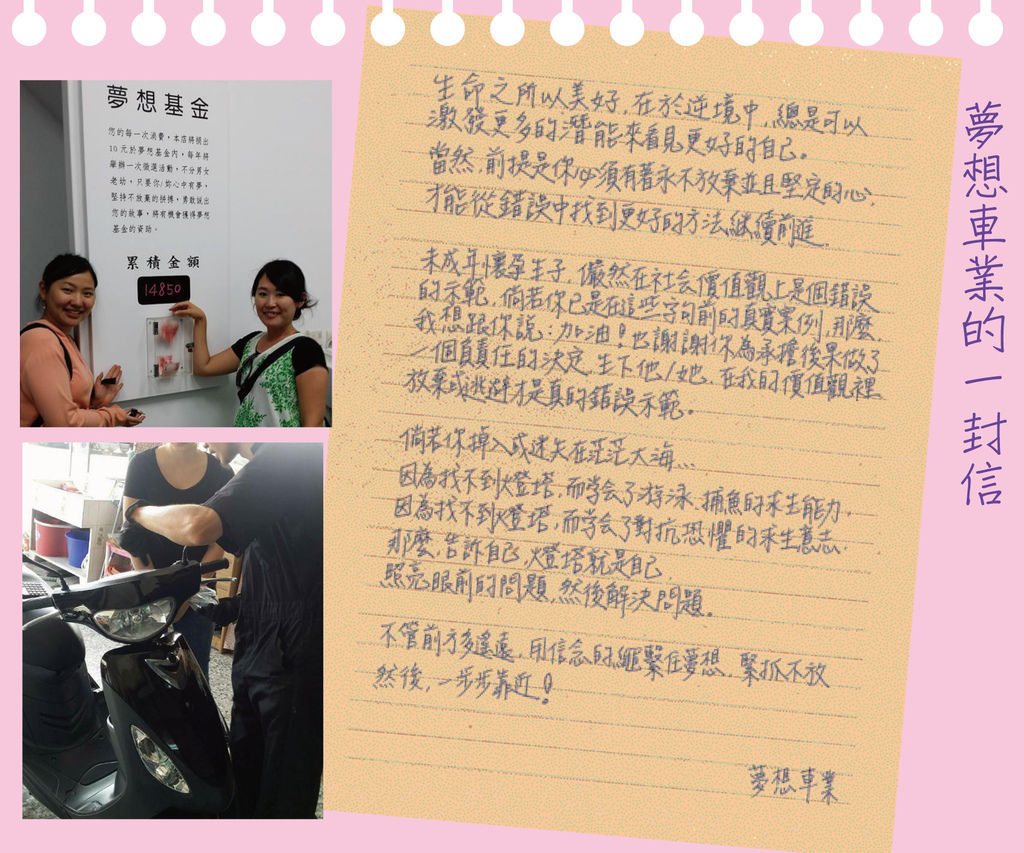 夢想基金
您的每一次消費，本店將捐出
10元於夢想基金內，每年將
舉辦一次徵選活動，不分男女
老幼，只要你/妳心中有夢，
堅持不放棄的拼搏，勇敢說出
您的故事，將有機會獲得夢想
基金的資助。
累積金額
14850
生命之所以美好，在於逆境中，總是可以
激發更多的潛能來看見更好的自己。
當然，前提是你必須有著永不放棄並且堅定的心，
才能從錯誤中找到更好的方法繼續前進。
未成年懷孕生子，儼然在社会價值觀上是個錯誤
的示範，倘若你已是在這些字句前的真實案例，那麼
我想跟你說：加油！也謝謝你為承擔後果做了
一個負責任的決定，生下他/她，在我的價值觀裡
放棄或逃避才是真的錯誤示範。
倘若你掉入或迷失在茫茫大海...
因為找不到燈塔，而学会了游泳、捕魚的求生能力，
因為找不到燈塔，而学会了對抗恐懼的求生意志，
那麼，告訴自己，燈塔就是自己，
照亮眼前的問題，然後解決問題。
不管前方多遙遠，用信念的繩繫住夢想，緊抓不放
然後，一步步靠近！
夢想車業
夢想車業的一封信